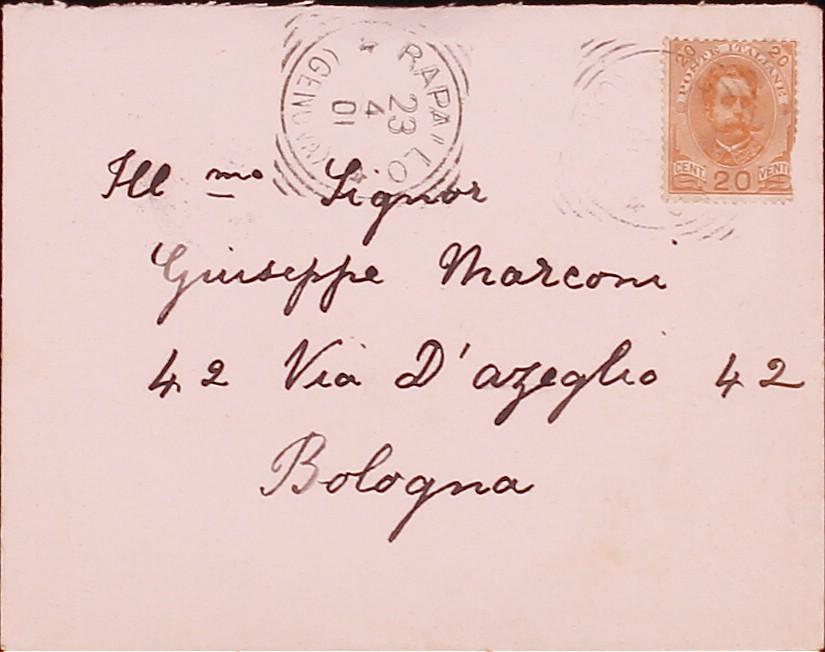 RAPALLO
23
4
01
(GENOVA)
20 20
POSTE ITALIANE
CENT. VENTI
20
Ill mo Signor
Giuseppe Marconi
42 Via D'azeglio 42
Bologna